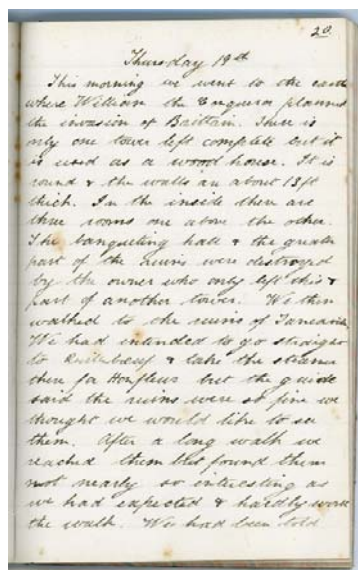 20.
Thursday 19th
This morning we went to the castle
where William the Conqueror planned
the invasion of Brittain. There is
only one tower left complete but it
is used as a wood house. It is
round & the walls are about 13ft
thick. In the inside there are
three rooms one above the other.
The banqueting hall & the greater
part of the ruins were destroyed
by the owner who only left this &
part of another tower. We then
walked to the ruins of
We had intended to go straight
to Quillebeuf & take the steamer
there for Honfleur but the guide
said the ruins were so fine we
thought we would like to see
them. After a long walk we
reached them but found them
not nearly so interesting as
we had expected & hardly worth
the walk. We had been told